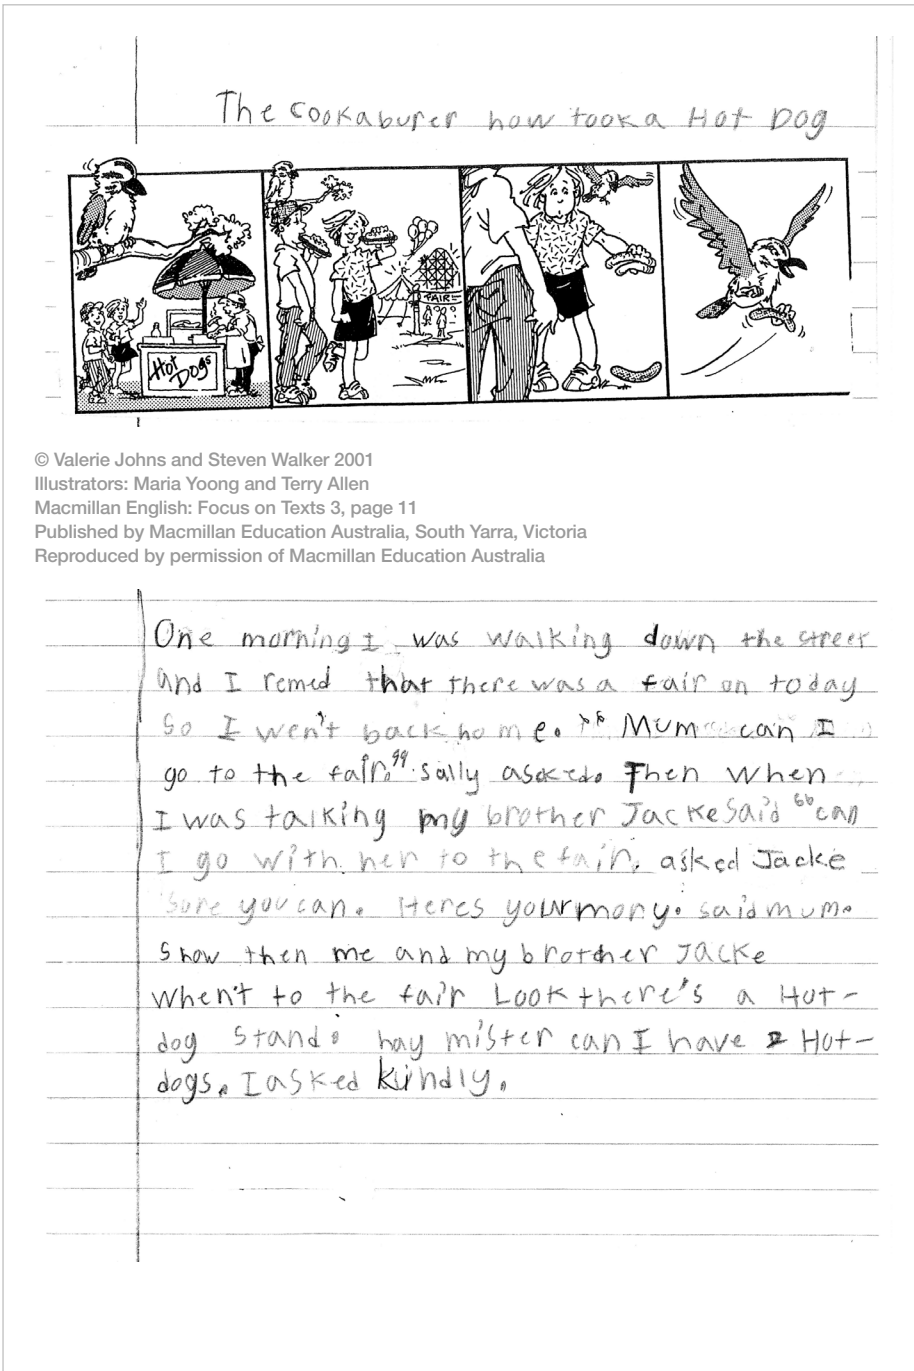 The cookaburer how took a Hot Dog
Hot
Dogs
FAIR
© Valerie Johns and Steven Walker 2001
Illustrators: Maria Yoong and Terry Allen
Macmillan English: Focus on Texts 3, page 11
Published by Macmillan Education Australia, South Yarra, Victoria
Reproduced by permission of Macmillan Education Australia
One morning I was walking down the street
and I remed that there was a fair on today
So I wen't back home. "Mum can I
go to the fair." sally asked. Then when
I was talking my brother Jacke said "can
I go with her to the fair. asked Jacke
Sure you can. Heres your mony. said mum.
Show then me and my brother Jacke
when't to the fair Look there's a Hot-
dog stand. hay mister can I have 2 Hot-
dogs. I asked kindly.